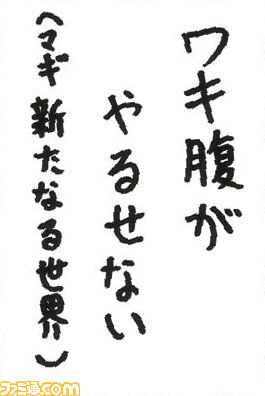 ワキ腹が
やるせない
(マギ 新たなる世界)
ファミ通.com